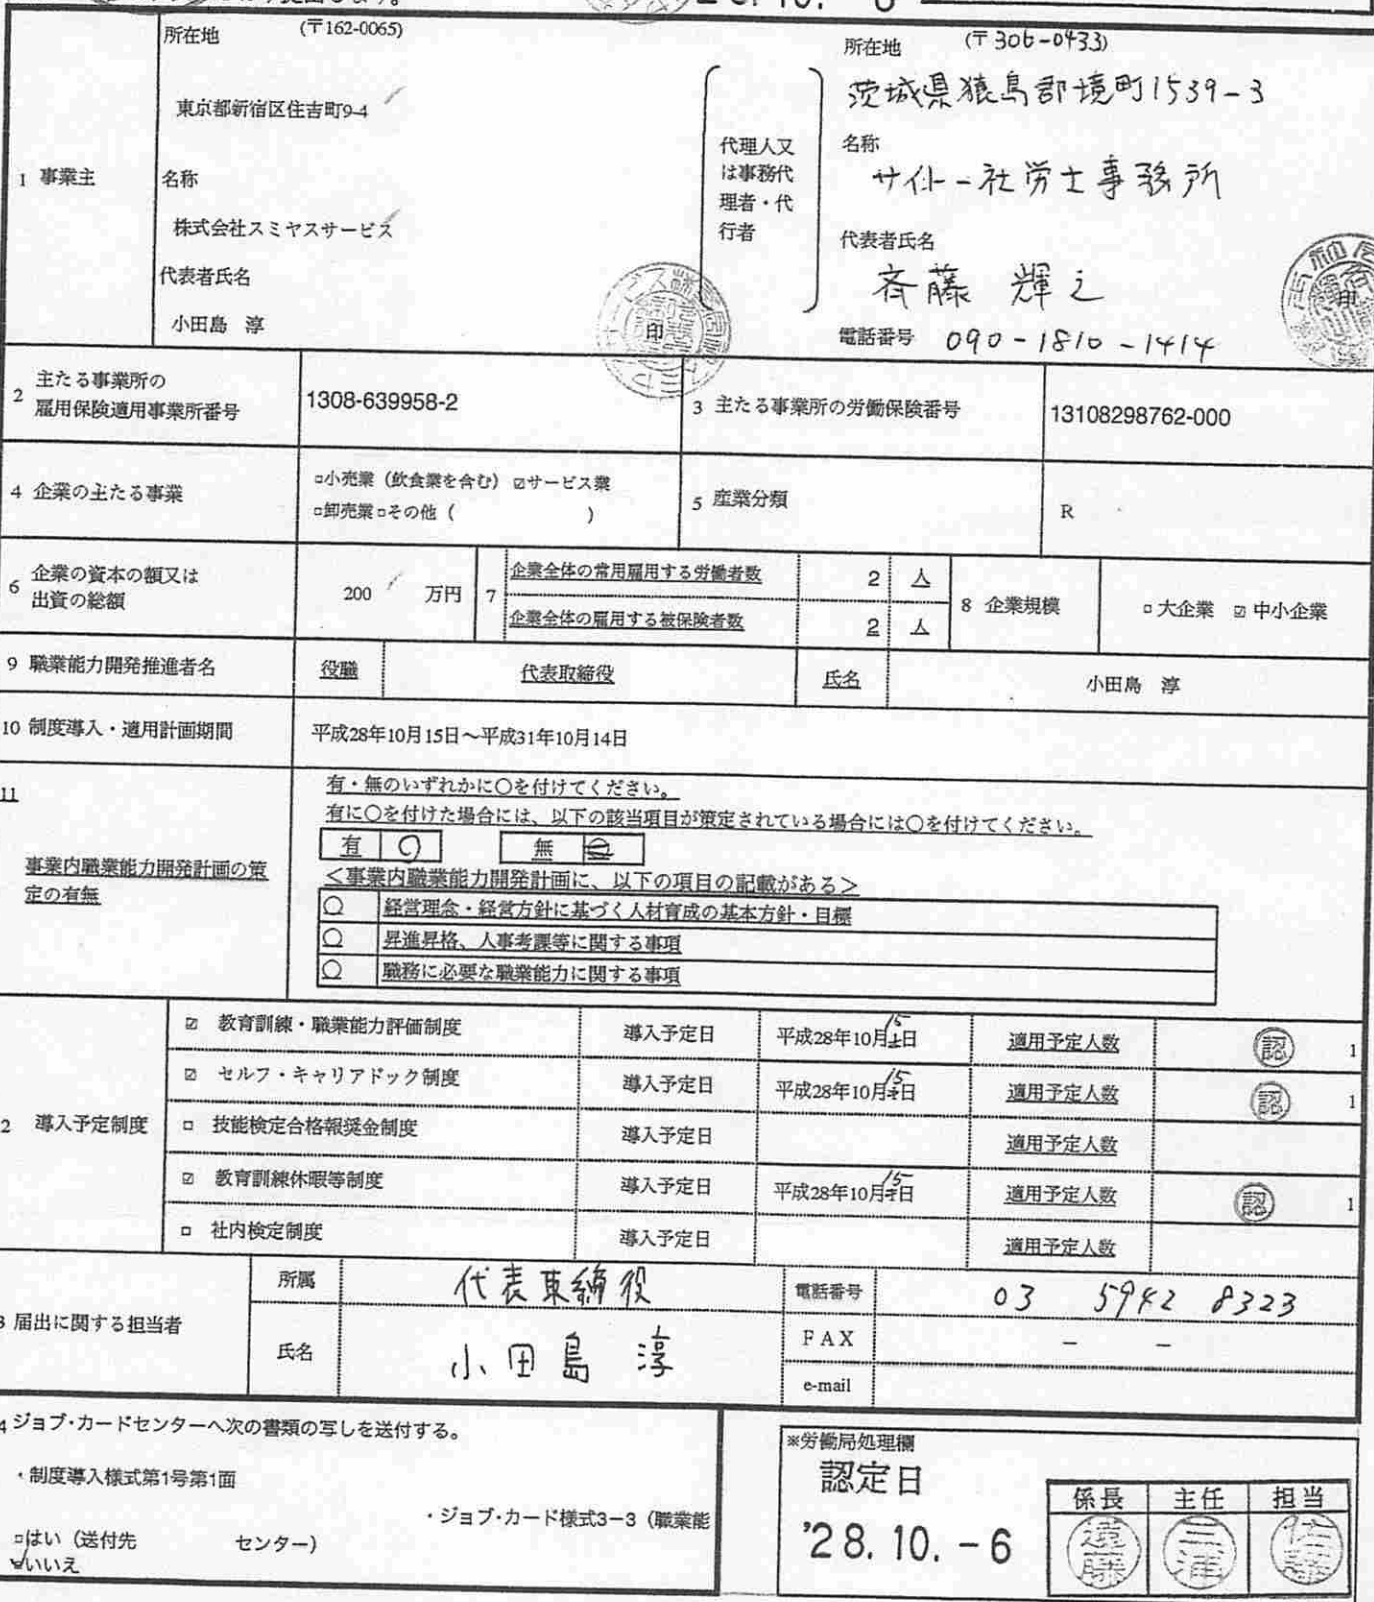 提出します。
所在地 (〒162-0065)
東京都新宿区住吉町9-4
1 事業主
名称
株式会社スミヤスサービス
代表者氏名
小田島 淳
印
代理人又
は事務代
理者・代
行者
所在地 (〒306-0433)
茨城県猿島郡境町1539-3
名称
サイトー社労士事務所
代表者氏名
斉藤 輝之
印
電話番号 090-1810-1414
2 主たる事業所の
雇用保険適用事業所番号
1308-639958-2
3 主たる事業所の労働保険番号
13108298762-000
4 企業の主たる事業
□小売業(飲食業を含む) ☑サービス業
□卸売業□その他( )
5 産業分類
R
6 企業の資本の額又は
出資の総額
200 万円
7
企業全体の常用雇用する労働者数 2 人
企業全体の雇用する被保険者数 2 人
8 企業規模
□ 大企業 ☑ 中小企業
9 職業能力開発推進者名
役職 代表取締役 氏名 小田島 淳
10 制度導入・適用計画期間
平成28年10月15日～平成31年10月14日
11
事業内職業能力開発計画の策
定の有無
有・無のいずれかに○を付けてください。
有に○を付けた場合には、以下の該当項目が策定されている場合には○を付けてください。
有 ○ 無
＜事業内職業能力開発計画に、以下の項目の記載がある＞
○ 経営理念・経営方針に基づく人材育成の基本方針・目標
○ 昇進昇格、人事考課等に関する事項
○ 職務に必要な職業能力に関する事項
2 導入予定制度
☑ 教育訓練・職業能力評価制度 導入予定日 平成28年10月15日 適用予定人数 認 1
☑ セルフ・キャリアドック制度 導入予定日 平成28年10月15日 適用予定人数 認 1
□ 技能検定合格報奨金制度 導入予定日 適用予定人数
☑ 教育訓練休暇等制度 導入予定日 平成28年10月15日 適用予定人数 認 1
□ 社内検定制度 導入予定日 適用予定人数
3 届出に関する担当者
所属 代表取締役
氏名 小田島 淳
電話番号 03 5942 8323
FAX － －
e-mail
4 ジョブ･カードセンターへ次の書類の写しを送付する。
・制度導入様式第1号第1面
・ジョブ･カード様式3−3（職業能
□はい（送付先 センター）
☑いいえ
※労働局処理欄
認定日
'28.10.-6
係長 主任 担当
遠藤 三浦 佐藤